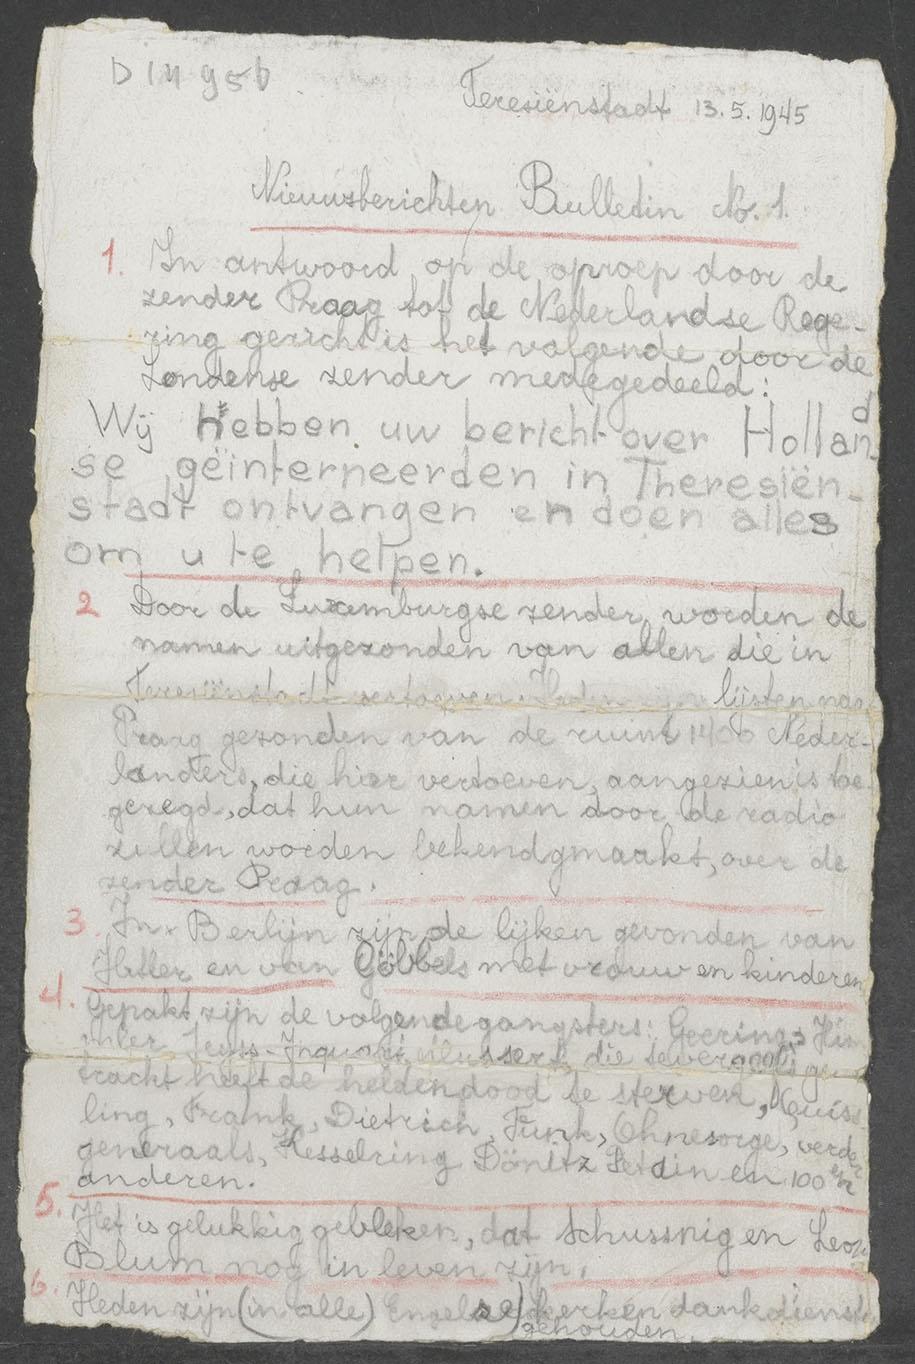 Teresiënstadt 13.5.1945
Nieuwsberichten Bulletin No. 1.
1. In antwoord op de oproep door de
zender Praag tot de Nederlandse Rege-
ring gericht is het volgende door de
Londense zender medegedeeld:
Wij hebben uw bericht over Holland-
se geïnterneerden in Theresiën-
stadt ontvangen en doen alles
om u te helpen.
2 Door de Luxemburgse zender worden de
namen uitgezonden van allen die in
Teresiënstadt vertoeven. Heden zijn lijsten naar
Praag gezonden van de ruim 1400 Neder-
landers, die hier vertoeven, aangezien is toe-
gezegd, dat hun namen door de radio
zullen worden bekendgmaakt, over de
zender Praag.
3. In Berlijn zijn de lijken gevonden van
Hitler en van Göbbels met vrouw en kinderen
4. Gepakt zijn de volgende gangsters: Goering, Him
mler, die tevergeefs ge
tracht heeft de heldendood te sterven, Quiss
ling, Frank, Dietrich, Funk, Ohnesorge, verder
generaals, Kesselring Dönitz Petain en 100 en
anderen.
5. Het is gelukkig gebleken, dat Schussnig en Leon
Blum nog in leven zijn.
6. Heden zijn (in alle) Engelse) kerken dankdienst
gehouden.